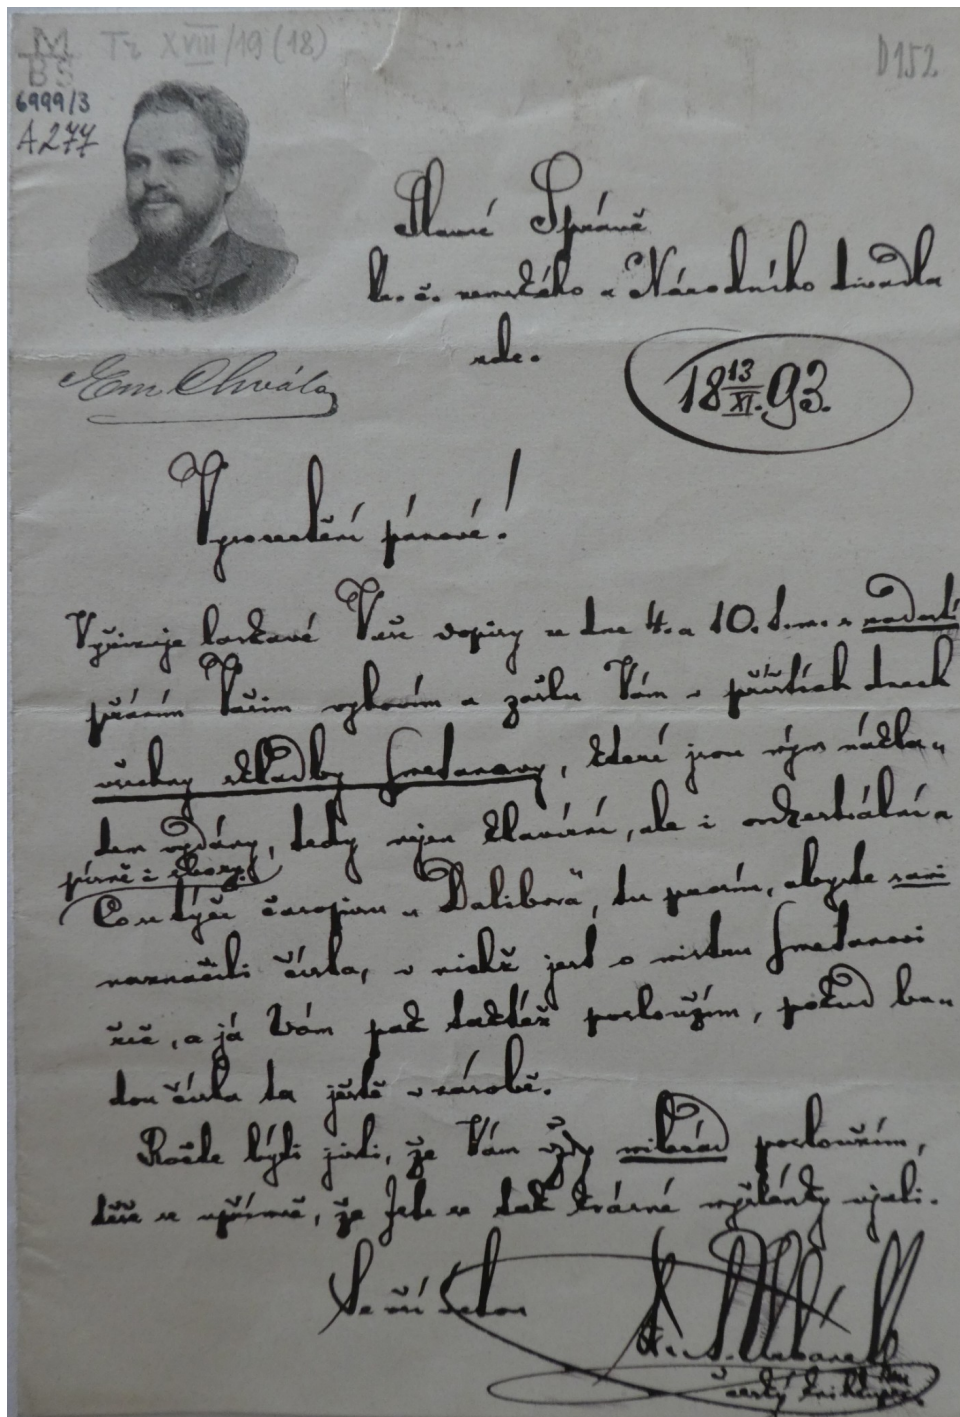 M
BS
Tr XVIII/19 (18)
D152
6999/3
A277
Slavné Správě
kr. č. zemského a Národního divadla
zde.
Em Chvála
18 13/XI. 93.
Vysocectění pánové!
Vyřizuje laskavé Vaše dopisy ze dne 4. a 10. t.m. s radostí
přáním Vašim vyhovím a zašlu Vám v příštích dnech
všechny skladby Smetanovy, které jsou mým nákla-
dem vydány, tedy nejen klavírní, ale i orkestrální a
písně i sbory.
Co se týče časopisu „Dalibora", tu prosím, abyste sami
naznačili čísla, v nichž jest o mistru Smetanovi
řeč, a já Vám pak taktéž posloužím, pokud bu-
dou čísla ta ještě v zásobě.
Račte býti jisti, že Vám vždy milerád posloužím,
těše se upřímně, že jste se tak krásné myšlénky ujali.
Se vší úctou
Fr. A. Urbánek
český knihkupec